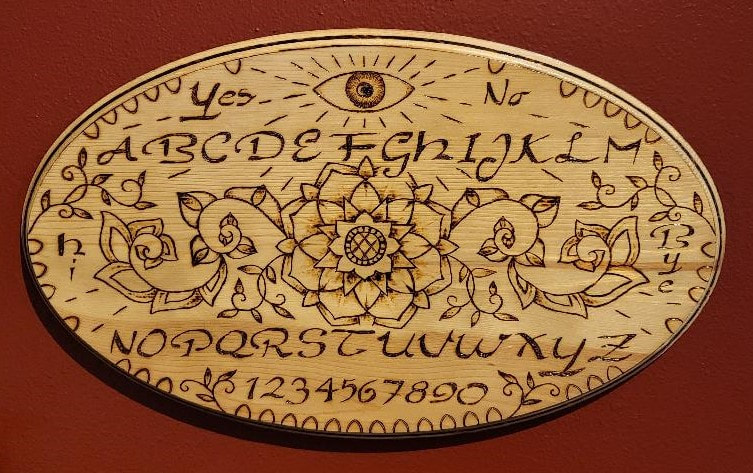 Yes No
ABCDEFGhIJKLM
hi Bye
NOPQRSTUVWXYZ
1234567890